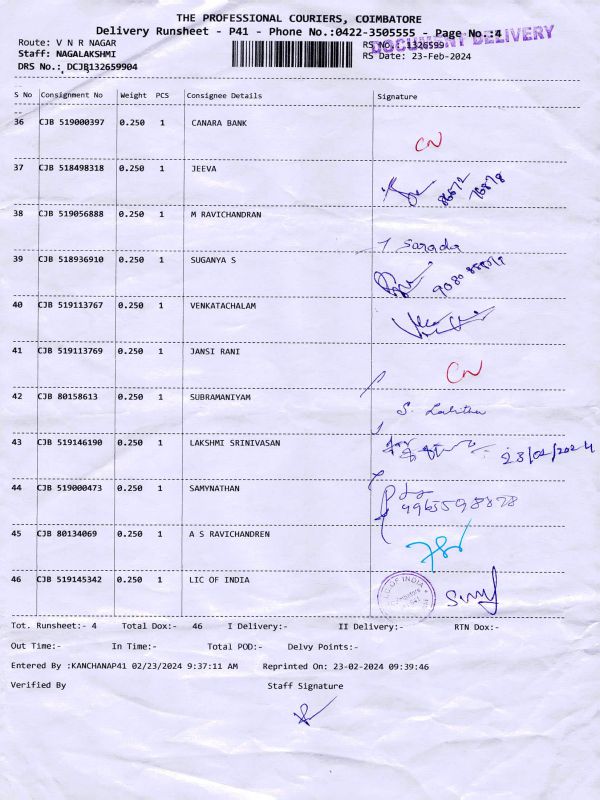 THE PROFESSIONAL COURIERS, COIMBATORE
Delivery Runsheet - P41 - Phone No.:0422-3505555 - Page No.:4
DOCUMENT DELIVERY
Route: V N R NAGAR RS No.: 1326599
Staff: NAGALAKSHMI RS Date: 23-Feb-2024
DRS No.: DCJB132659904
S No Consignment No Weight PCS Consignee Details Signature
36 CJB 519000397 0.250 1 CANARA BANK
CN
37 CJB 518498318 0.250 1 JEEVA
86672 76878
38 CJB 519056888 0.250 1 M RAVICHANDRAN
Sarada
39 CJB 518936910 0.250 1 SUGANYA S
40 CJB 519113767 0.250 1 VENKATACHALAM
41 CJB 519113769 0.250 1 JANSI RANI
CN
42 CJB 80158613 0.250 1 SUBRAMANIYAM
S. Lalitha
43 CJB 519146190 0.250 1 LAKSHMI SRINIVASAN
23/02/2024
44 CJB 519000473 0.250 1 SAMYNATHAN
45 CJB 80134069 0.250 1 A S RAVICHANDREN
46 CJB 519145342 0.250 1 LIC OF INDIA
OF INDIA
Tot. Runsheet:- 4 Total Dox:- 46 I Delivery:- II Delivery:- RTN Dox:-
Out Time:- In Time:- Total POD:- Delvy Points:-
Entered By :KANCHANAP41 02/23/2024 9:37:11 AM Reprinted On: 23-02-2024 09:39:46
Verified By Staff Signature